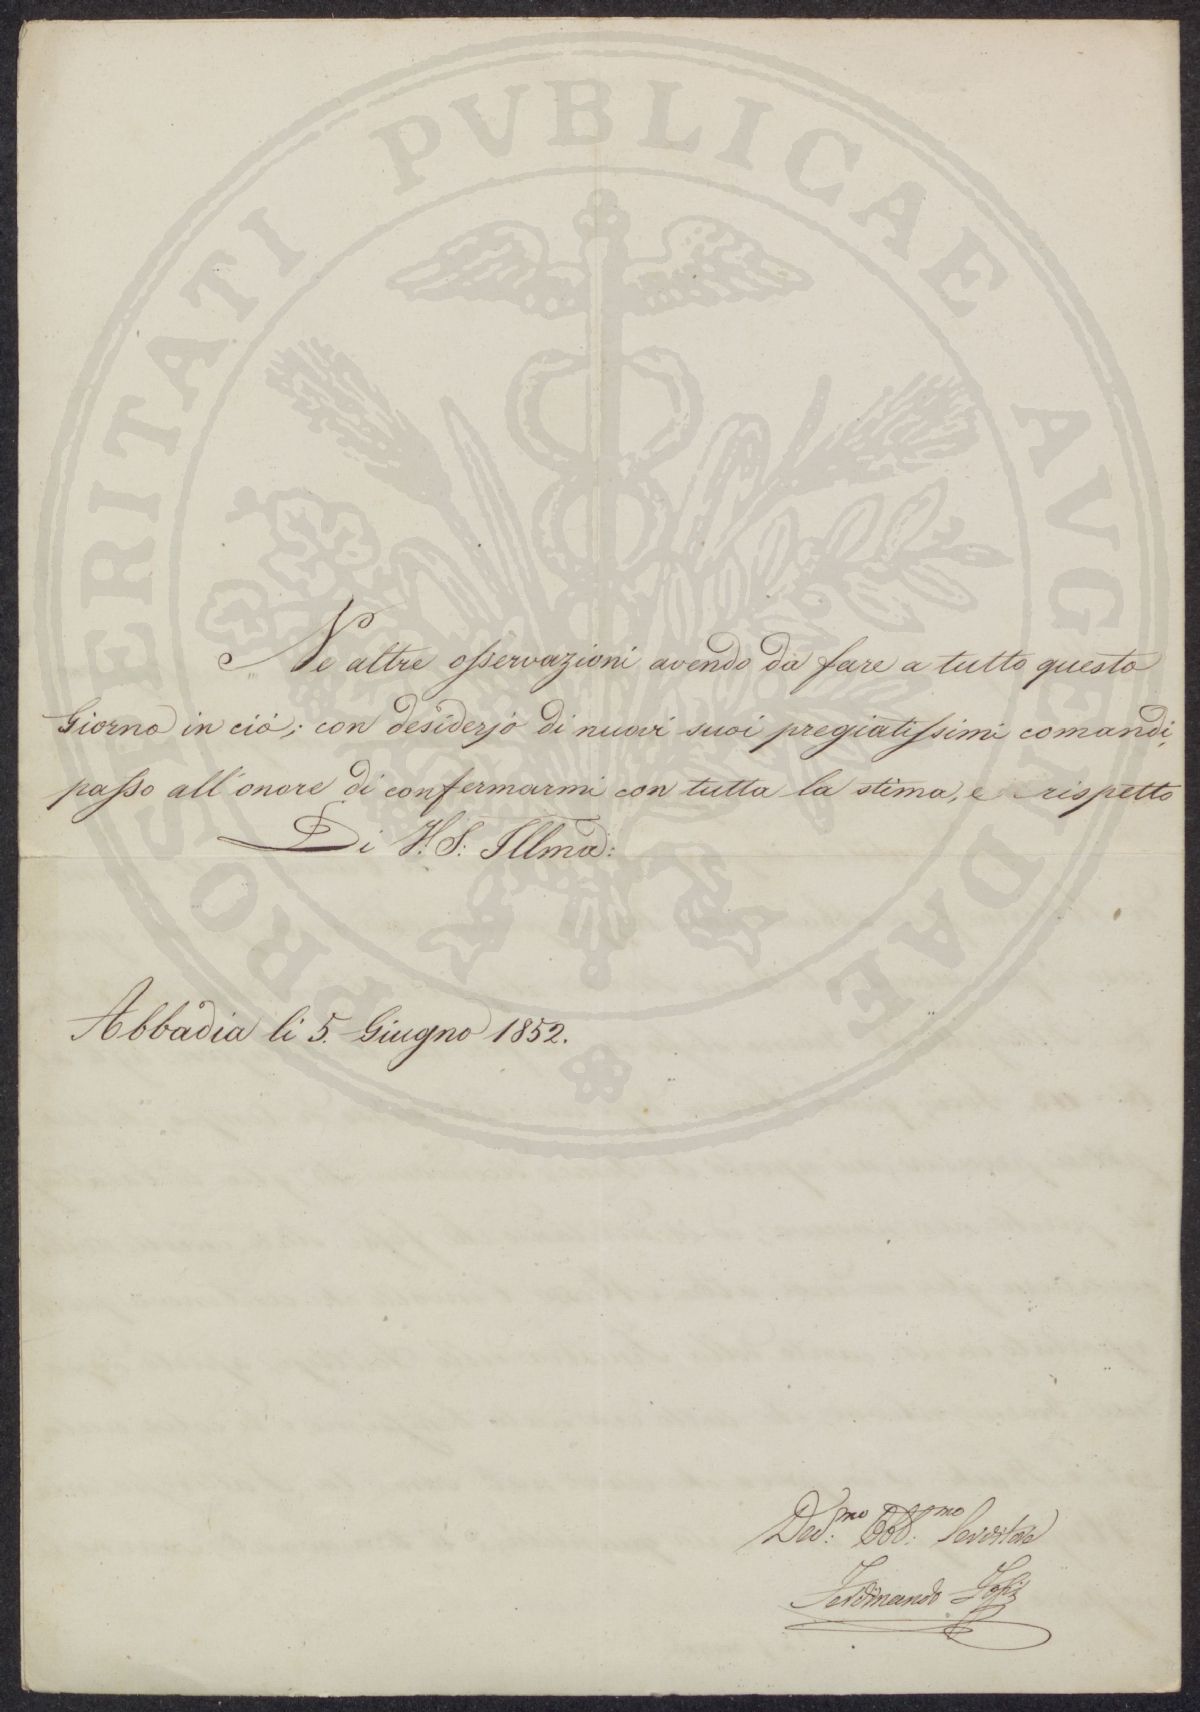 PROSPERITATI PVBLICAE AVGENDAE
Ne altre osservazioni avendo da fare a tutto questo
Giorno in ciò; con desiderjo di nuovi suoi pregiatissimi comandi,
passo all'onore di confermarmi con tutta la stima, e rispetto
Di V: S: Illma:
Abbadia li 5. Giugno 1852.
Dev:mo Obb:mo Servitore
Ferdinando